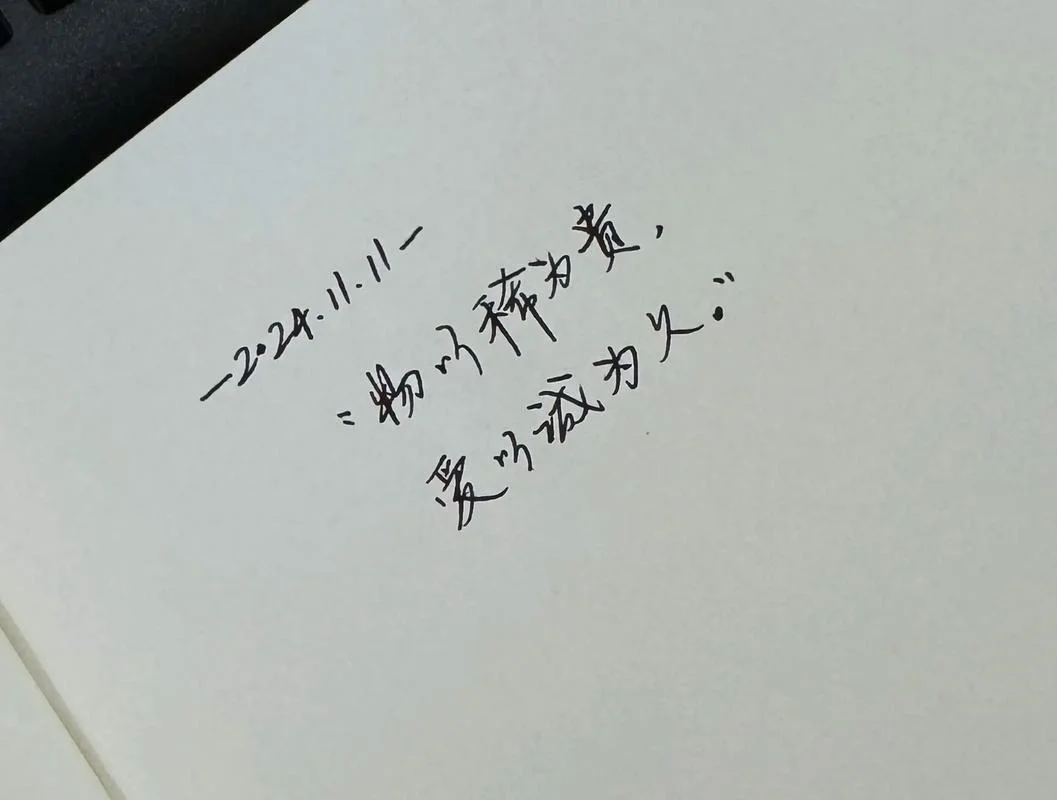 -2024.11.11-
"物以稀为贵,
爱以诚为久."